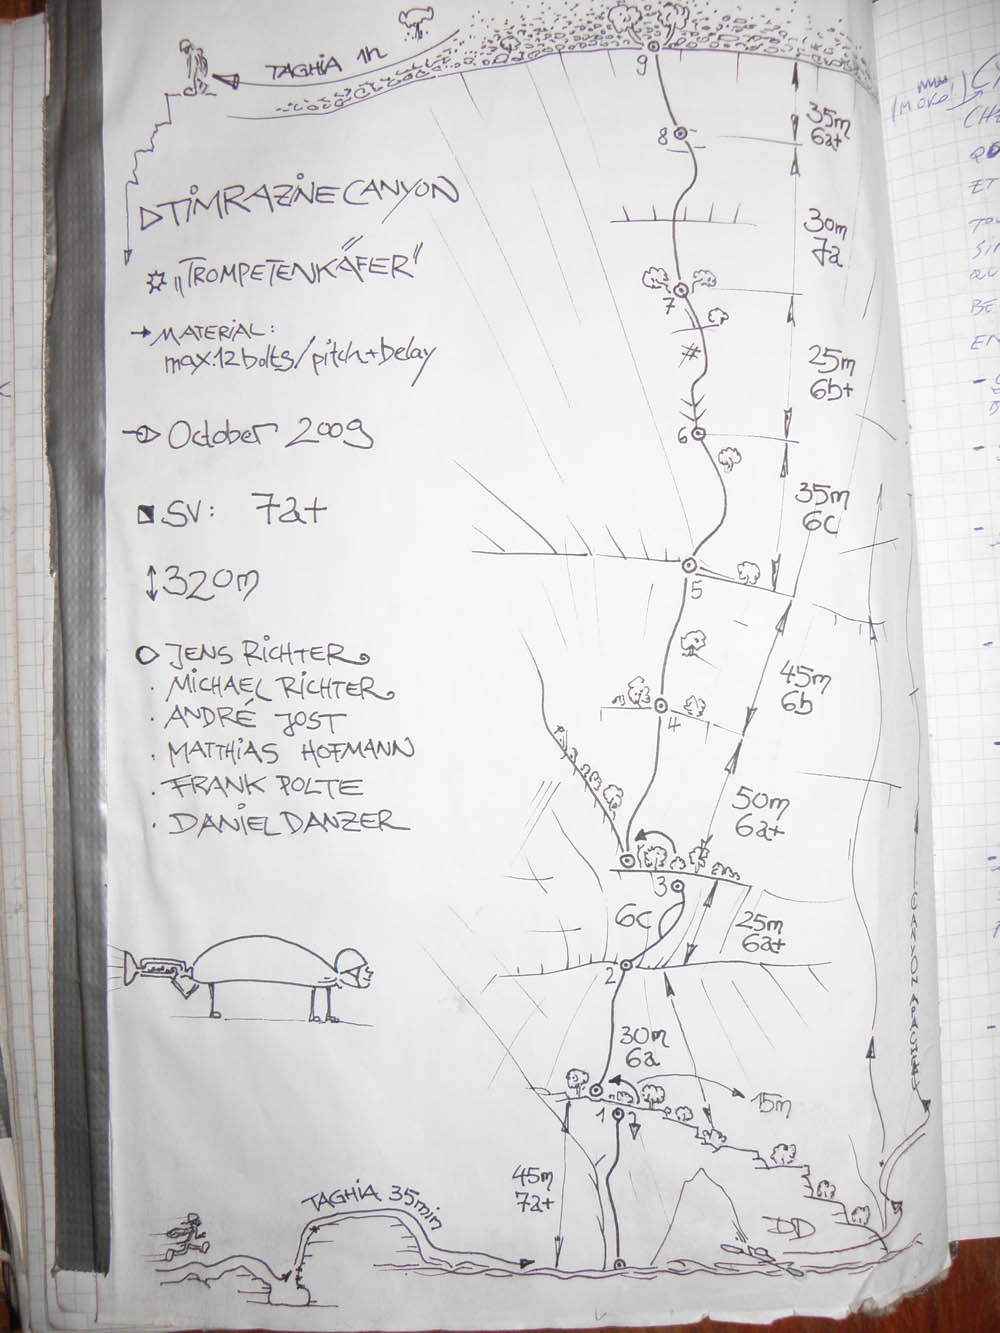 TAGHIA 1h
TIMRAZINE CANYON
„TROMPETENKÄFER"
MATERIAL:
max.12 bolts/pitch+belay
October 2009
SV: 7a+
320m
JENS RICHTER
MICHAEL RICHTER
ANDRÉ JOST
MATTHIAS HOFMANN
FRANK POLTE
DANIEL DANZER
9
35m
6a+
8
30m
7a
7
#
25m
6b+
6
35m
6c
5
45m
6b
4
50m
6a+
3
6c
25m
6a+
2
30m
6a
15m
1
45m
7a+
TAGHIA 35min
DD
CANYON APACHE
(MOKO!)
ET
QU
BE
EN